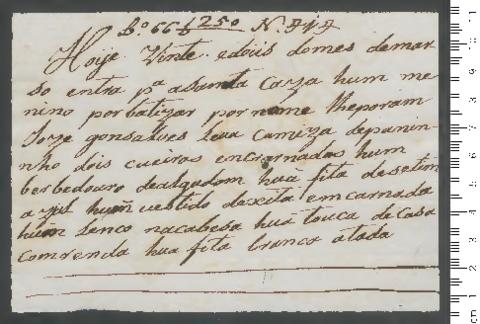 B.º 66 f 250 N.
Hoije Vinte edoiis domes demar
so entra pª asamta Caza hum me
nino porbatizar pornome lheporam
Joze gonsalves leva Camiza depanin
nho dois cueiros encarnados hum
berbedouro dealgudom huã fita desetim
azul hum vestido dexita emcarnada
hum lenco nacabesa huã touca de Casa
comrenda hua fita branca atada